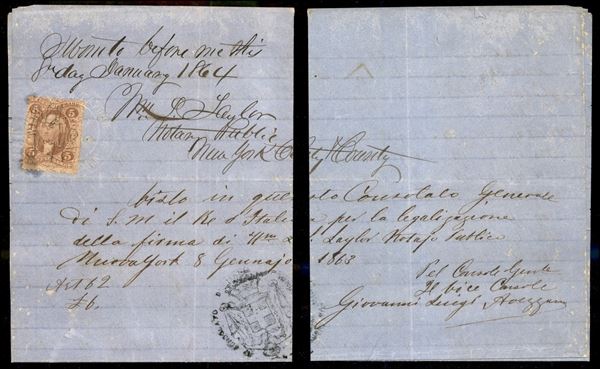 before me this
day January 1864
Wm J. Taylor
Notary Public
New York City & County
5 5
Visto in questo Consolato Generale
di S. M. il Re d'Italia per la legalizazione
della firma di Wm Taylor Notajo Publico
Nuova York 8 Gennajo 1863
Art 62
Pel Console Genle
Il vice Console
Giovanni Luigi